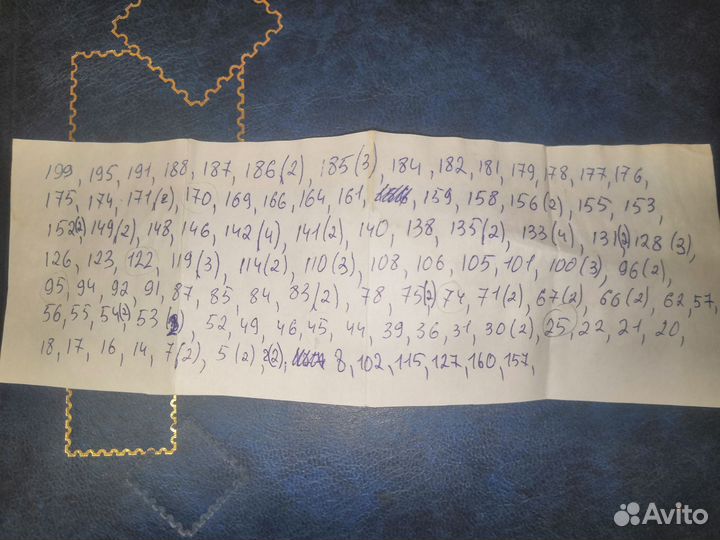 199, 195, 191, 188, 187, 186(2), 185(3), 184, 182, 181, 179, 78, 177, 176,
175, 174, 171(2), 170, 169, 166, 164, 161, 159, 158, 156(2), 155, 153,
152(2), 149(2), 148, 146, 142(4), 141(2), 140, 138, 135(2), 133(4), 131(2), 128(3),
126, 123, 122, 119(3), 114(2), 110(3), 108, 106, 105, 101, 100(3), 96(2),
95, 94, 92, 91, 87, 85, 84, 83(2), 78, 75(2), 74, 71(2), 67(2), 66(2), 62, 57,
56, 55, 54(2), 53 52, 49, 46, 45, 44, 39, 36, 31, 30(2), 25, 22, 21, 20,
18, 17, 16, 14, 7(2), 5(2), 8, 102, 115, 127, 160, 157,
Avito